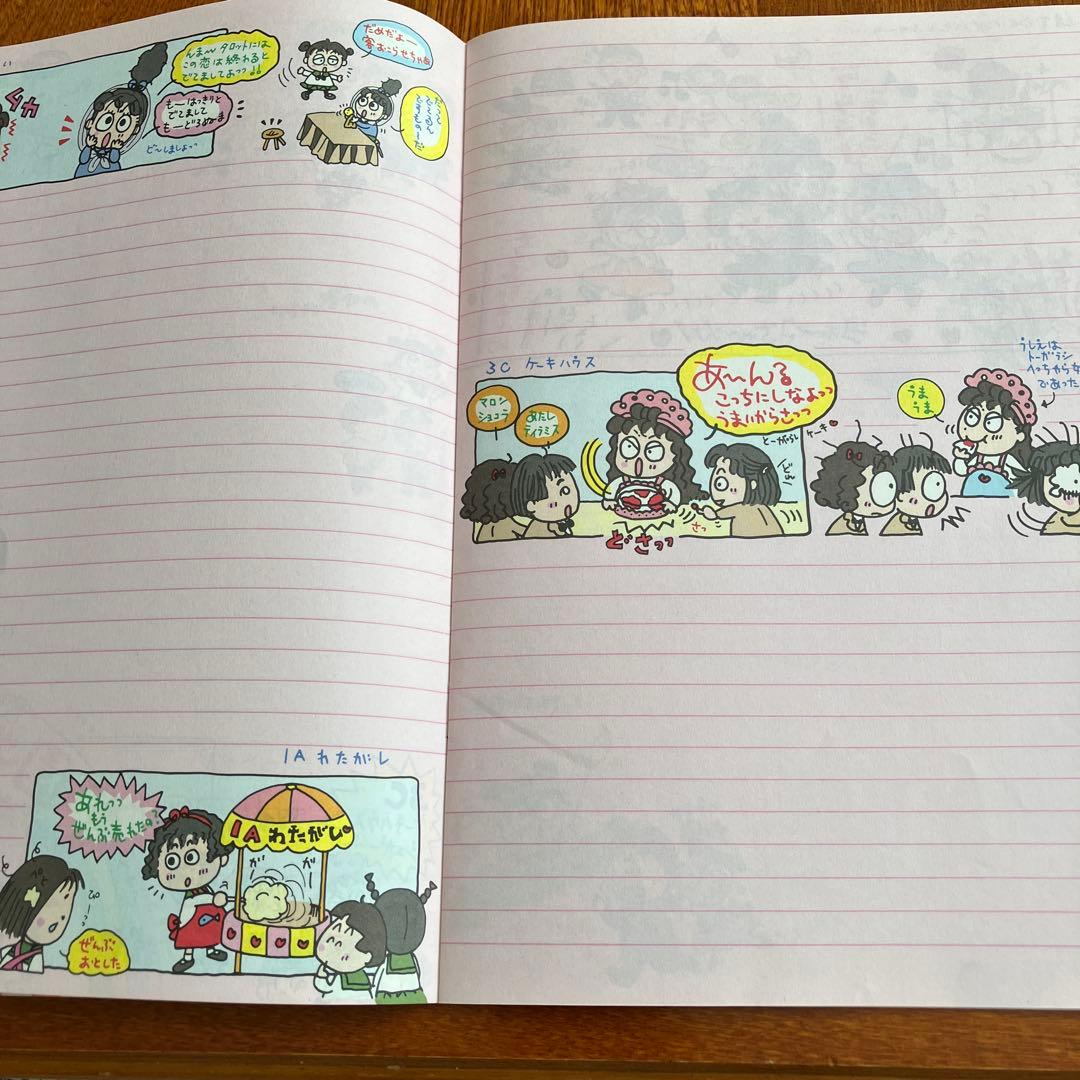 い
んま〜タロットには
この恋は終わると
でてましてよっっ!!
も〜はっきりと
でてまして
も〜どろぬま
ど〜しましょっ
だめだよー
客おこらせちゃあ
1A わたがし
あれっっ
もう
ぜんぶ売れたの?
1A わたがし
ガ ガ
ぜんぶ
おとした
3C ケーキハウス
マロン
ショコラ
あたし
ティラミス
あ〜んる
こっちにしなよっっ
うまいからさっっ
とーがらし
さっ
どさっっ
ケーキ
うま
うま
うしえは
トーガラシ
へっちゃら女
であった